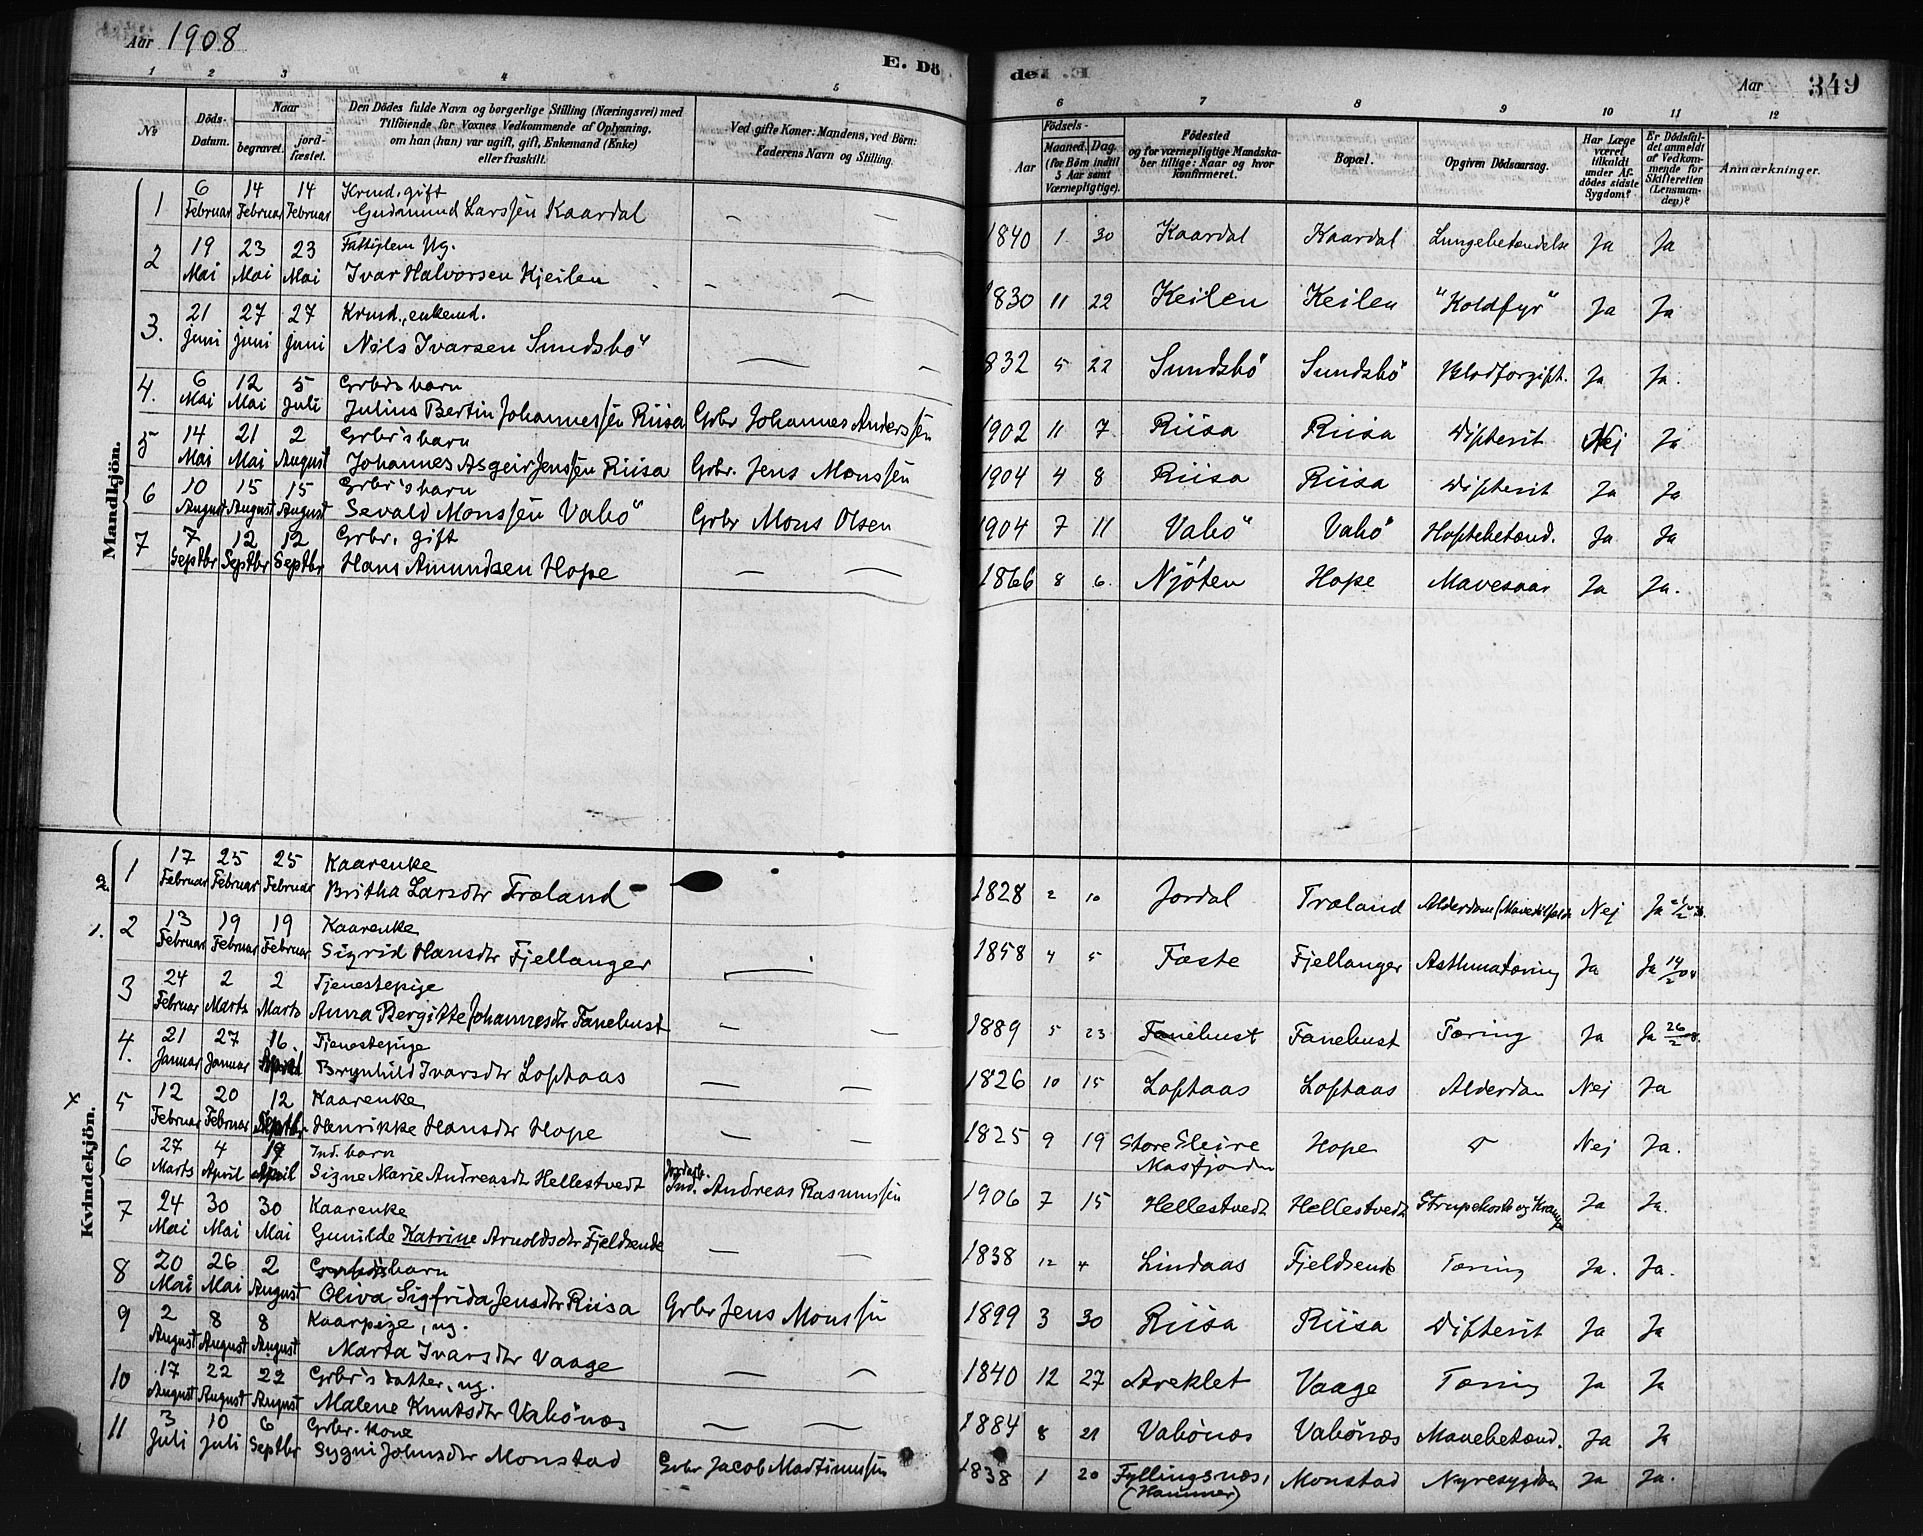 Aar 1908
E. Dö
de. E.
Aar 349
1 2 3 4 5
6 7 8 9 10 11 12
№
Döds-Datum.
Naar
begravet.
jord-fæstet.
Den Dödes fulde Navn og borgerlige Stilling (Næringsvei) med
Tilföiende for Voxnes Vedkommende af Oplysning,
om han (hun) var ugift, gift, Enkemand (Enke)
eller fraskilt.
Ved gifte Koner: Mandens, ved Börn:
Faderens Navn og Stilling.
Födsels-
Aar
Maaned. Dag.
(for Börn indtil
5 Aar samt
Værnepligtige).
Födested
og for værnepligtige Mandska-
ber tillige: Naar og hvor
konfirmeret.
Bopæl.
Opgiven Dödsaarsag.
Har Læge
været
tilkaldt
under Af-
dödes sidste
Sygdom?
Er Dödsfal-
det anmeldt
af Vedkom-
mende for
Skifteretten
(Lensman-
den)?
Anmærkninger.
Mandkjön.
1 6 Februar 14 Februar 14 Februar Krmd. gift
Gudmund Larssen Kaardal — — 1840 1 30 Kaardal Kaardal Lungebetændelse Ja Ja
2 19 Mai 23 Mai 23 Mai Fattiglem Ug.
Ivar Halvorsen Kjeilen — — 1830 11 22 Keilen Keilen "Koldfyr" Ja Ja
3. 21 Juni 27 Juni 27 Juni Krmd., enkemd.
Nils Ivarsen Sundsbö — — 1832 5 22 Sundsbö Sundsbö Blodforgift. Ja Ja.
4. 6 Mai 12 Mai 5 Juli Grbrs barn
Julius Bertin Johannessen Riisa Grbr Johannes Anderssen 1902 11 7 Riisa Riisa Difterit Nej Ja
5 14 Mai 21 Mai 2 August Grbr's barn
Johannes Asgeir Jenssen Riisa Grbr. Jens Monssen 1904 4 8 Riisa Riisa Difterit Ja Ja
6 10 August 15 August 15 August Grbr's barn
Sevald Monssen Vabö Grbr Mons Olsen 1904 7 11 Vabö Vabö Hoftebetænd. Ja Ja
7 7 Septbr 12 Septbr 12 Septbr Grbr. gift
Hans Amundsen Hope — — 1866 8 6. Njöten Hope Mavesaar Ja Ja.
Kvindekjön.
2. 1 17 Februar 25 Februar 25 Februar Kaarenke
Britha Larsdtr Træland 1828 2 10 Jordal Træland Alderdom Nej Ja
1. 2 13 Februar 19 Februar 19 Februar Kaarenke
Sigrid Hansdtr Fjellanger — 1858 4 5 Fæste Fjellanger Asthmatæring Ja Ja 14/2 08
3 24 Februar 2 Marts 2 Marts Tjenestepige
Anna Bergitte Johannesdtr Fanebust — — 1889 5 23 Fanebust Fanebust Tæring Ja Ja 26/2 08.
4. 21 Januar 27 Januar 16. April Tjenestepige
Brynhild Ivarsdtr Loftaas — — 1826 10 15 Loftaas Loftaas Alderdom Nej Ja
x 5 12 Februar 20 Februar 12 Septbr. Kaarenke
Henrikke Hansdtr Hope — — 1825 9 19 Store Eleire Masfjorden Hope Nej Ja.
6 27 Marts 4 April 19 April Ind. barn
Signe Marie Andreasdtr Hellestvedt Ind. Andreas Rasmussen 1906 7 15 Hellestvedt Hellestvedt Strupehoste og Krampe Ja Ja.
7 24 Mai 30 Mai 30 Mai Kaarenke
Gunilde Katrine Arnoldsdtr Fjeldsende — — 1838 12 4 Lindaas Fjeldsende Tæring Ja. Ja.
8 20 Mai 26 Mai 2 August barn
Oliva Sigfrida Jensdtr Riisa Grbr Jens Monssen 1899 3 30 Riisa Riisa Difterit Ja Ja
9 2 August 8 August 8 August Kaarpige, ug.
Marta Ivarsdtr Vaage — — 1840 12 27 Areklet Vaage Tæring Ja Ja
10 17 August 22 August 22 August Grbr's datter, ug.
Malene Knutsdtr Vabönæs — — 1884 8 21 Vabönæs Vabönæs Mavebetænd. Ja Ja
11 3 Juli 10 Juli 6 Septbr Grbr. kone
Sygni Johnsdtr Monstad Grbr Jacob Martinussen 1838 1 20 Fyllingsnæs, (Hammer) Monstad Nyresygdom Ja Ja.